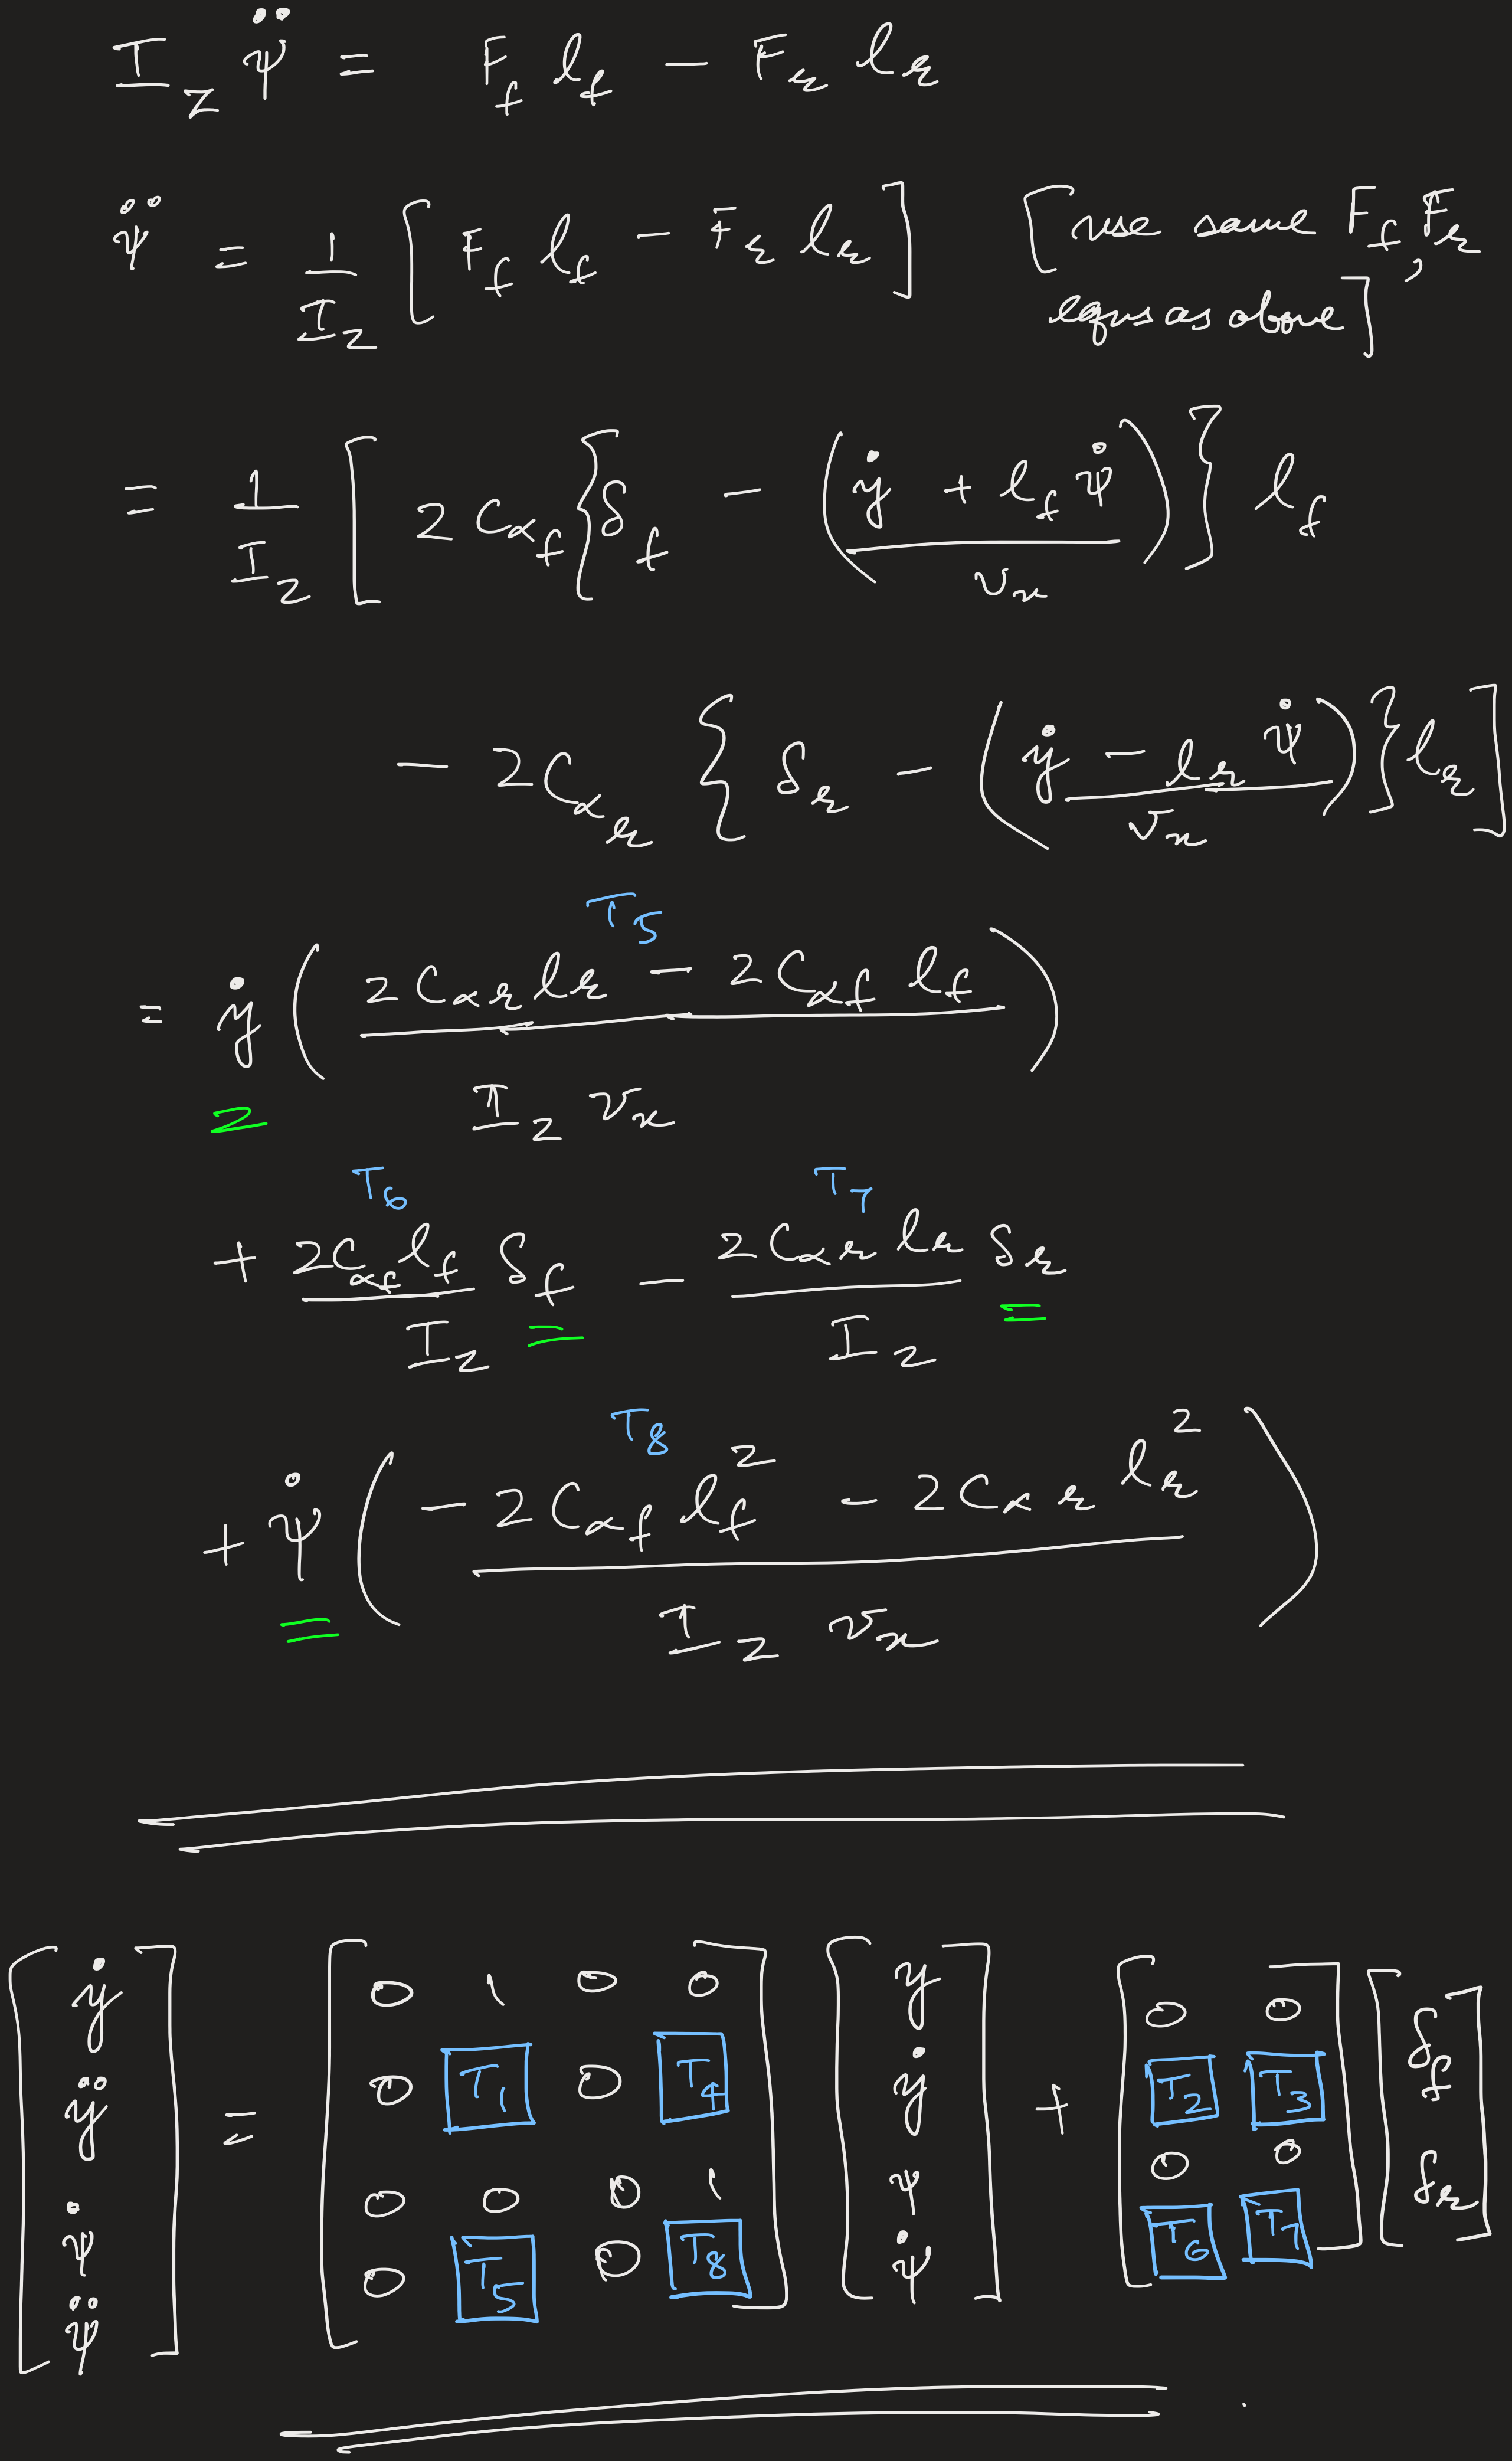 I_z ψ̈ = F_f l_f − F_r l_r
ψ̈ = 1/I_z [ F_f l_f − F_r l_r ] [use same F_f, F_r
eqns as above]
= 1/I_z [ 2 C_αf { δ_f − ( (ẏ + l_f ψ̇) / v_x ) } l_f
− 2 C_αr { δ_r − ( (ẏ − l_r ψ̇) / v_x ) } l_r ]
T5
= ẏ ( (2 C_αr l_r − 2 C_αf l_f) / (I_z v_x) )
T6 T7
+ (2 C_αf l_f / I_z) δ_f − (2 C_αr l_r / I_z) δ_r
T8
+ ψ̇ ( (− 2 C_αf l_f² − 2 C_αr l_r²) / (I_z v_x) )
[ẏ] [0 1 0 0] [y] [0 0] [δ_f
[ÿ] = [0 T1 0 T4] [ẏ] + [T2 T3]
[ψ̇] [0 0 0 1] [ψ] [0 0] δ_r]
[ψ̈] [0 T5 0 T8] [ψ̇] [T6 T7]